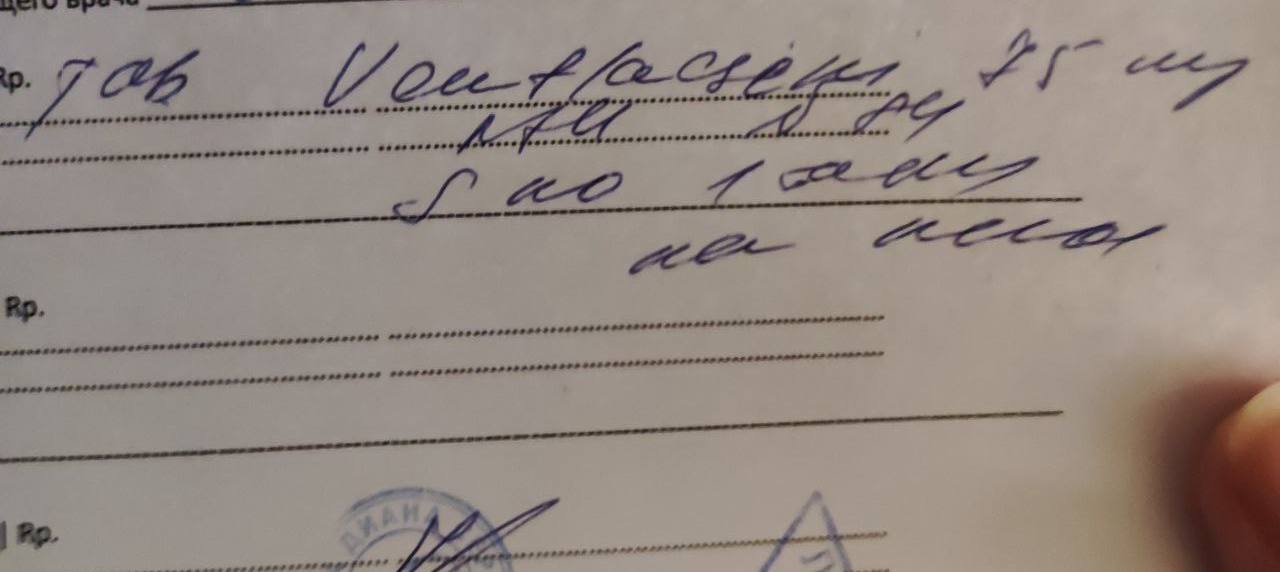 щего врача
Rp. Tab Venflaxini 75 mg
N 84
S по 1 табл
на ночь
Rp.
Rp.
ДИАНА